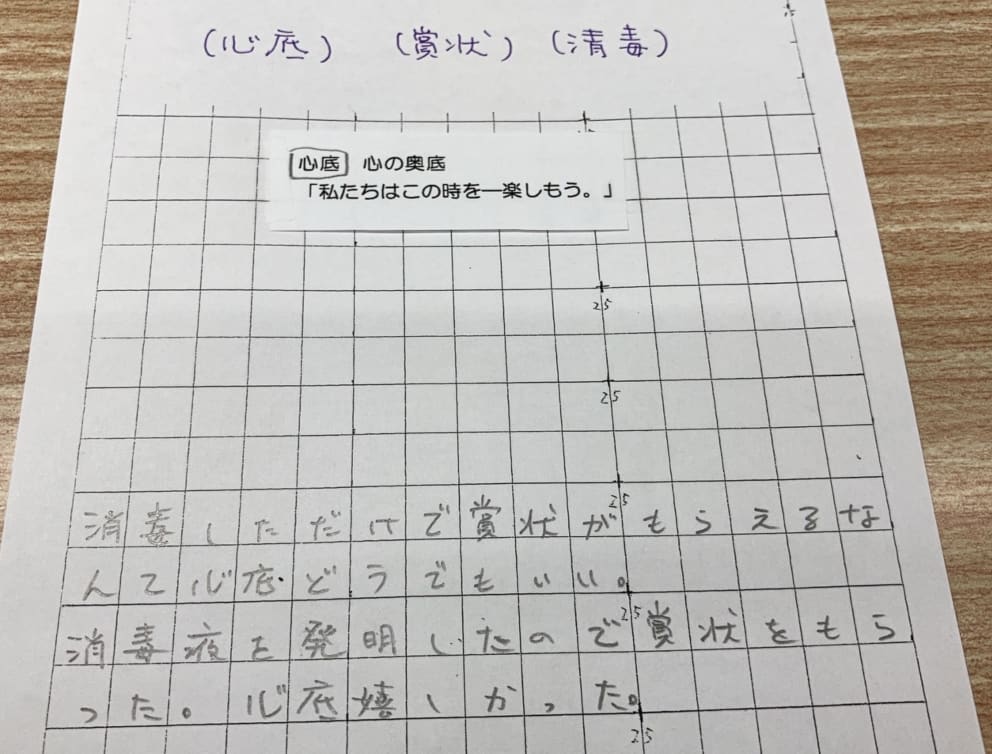 (心底) (賞状) (清毒)
心底 心の奥底
「私たちはこの時を一楽しもう。」
25
25
25
消毒しただけで賞状がもらえるな
んて心底どうでもいい。
25
消毒液を発明したので賞状をもら
った。心底嬉しかった。
25